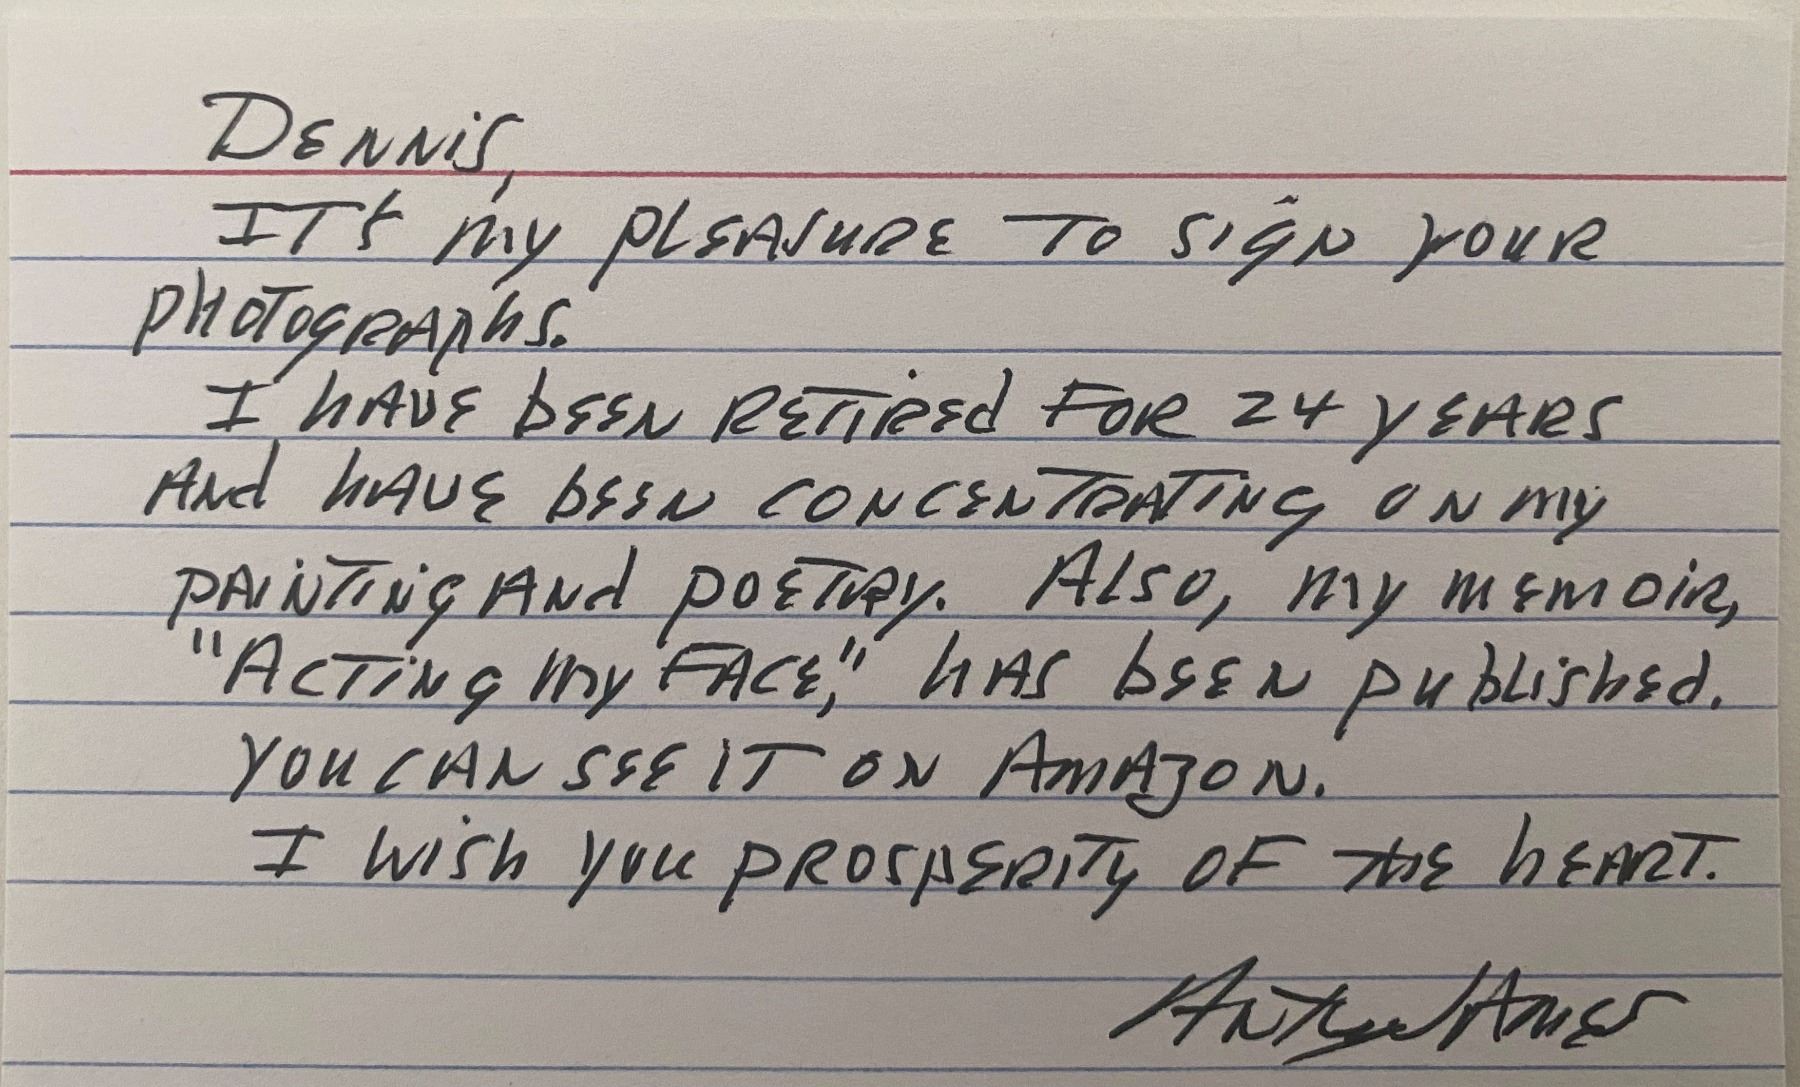 Dennis,
It's my pleasure to sign your
photographs.
I have been retired for 24 years
and have been concentrating on my
painting and poetry. Also, my memoir,
"Acting my Face," has been published.
You can see it on Amazon.
I wish you prosperity of the heart.
Anthony James